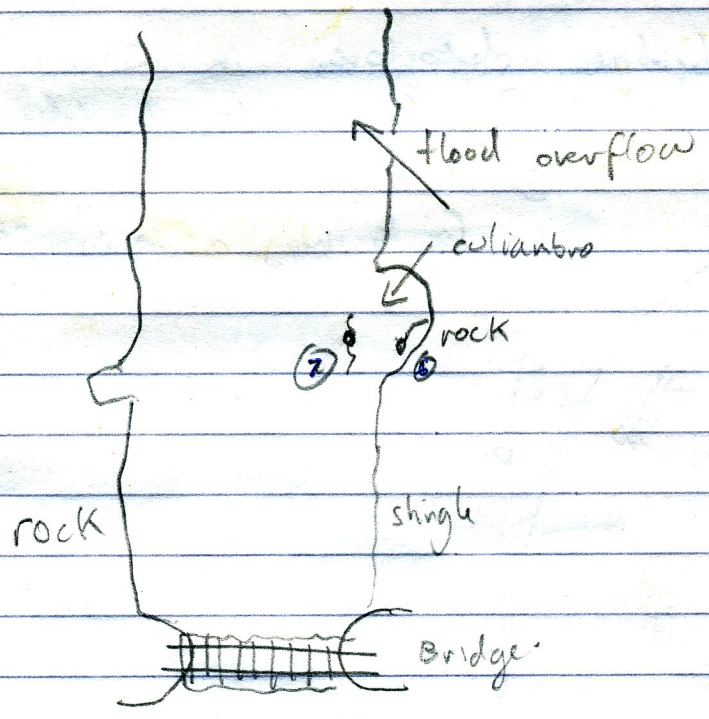 flood overflow
culianbro
rock
7
6
rock
shingle
Bridge.